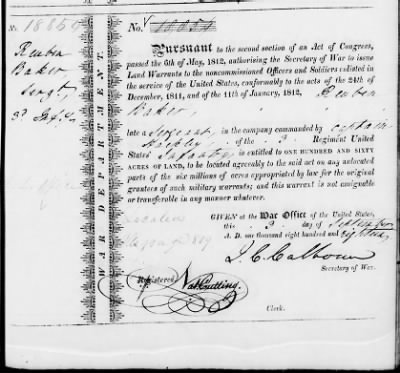 No. 18850
Reuben
Baker,
Sergt,
3d
WAR DEPARTMENT.
No. 18854
Pursuant to the second section of an Act of Congress,
passed the 6th of May, 1812, authorising the Secretary of War to issue
Land Warrants to the noncommissioned Officers and Soldiers enlisted in
the service of the United States, conformably to the acts of the 24th of
December, 1811, and of the 11th of January, 1812, Reuben
Baker,
late a Sergeant, in the company commanded by Captain
of the 3d Regiment United
States' Infantry is entitled to ONE HUNDRED AND SIXTY
ACRES OF LAND, to be located agreeably to the said act on any unlocated
parts of the six millions of acres appropriated by law for the original
grantees of such military warrants; and this warrant is not assignable
or transferable in any manner whatever.
Located
GIVEN at the War Office of the United States,
this 3 day of September
A. D. one thousand eight hundred and eighteen
J. C. Calhoun
Secretary of War.
Registered
Nat Cutting.
Clerk.